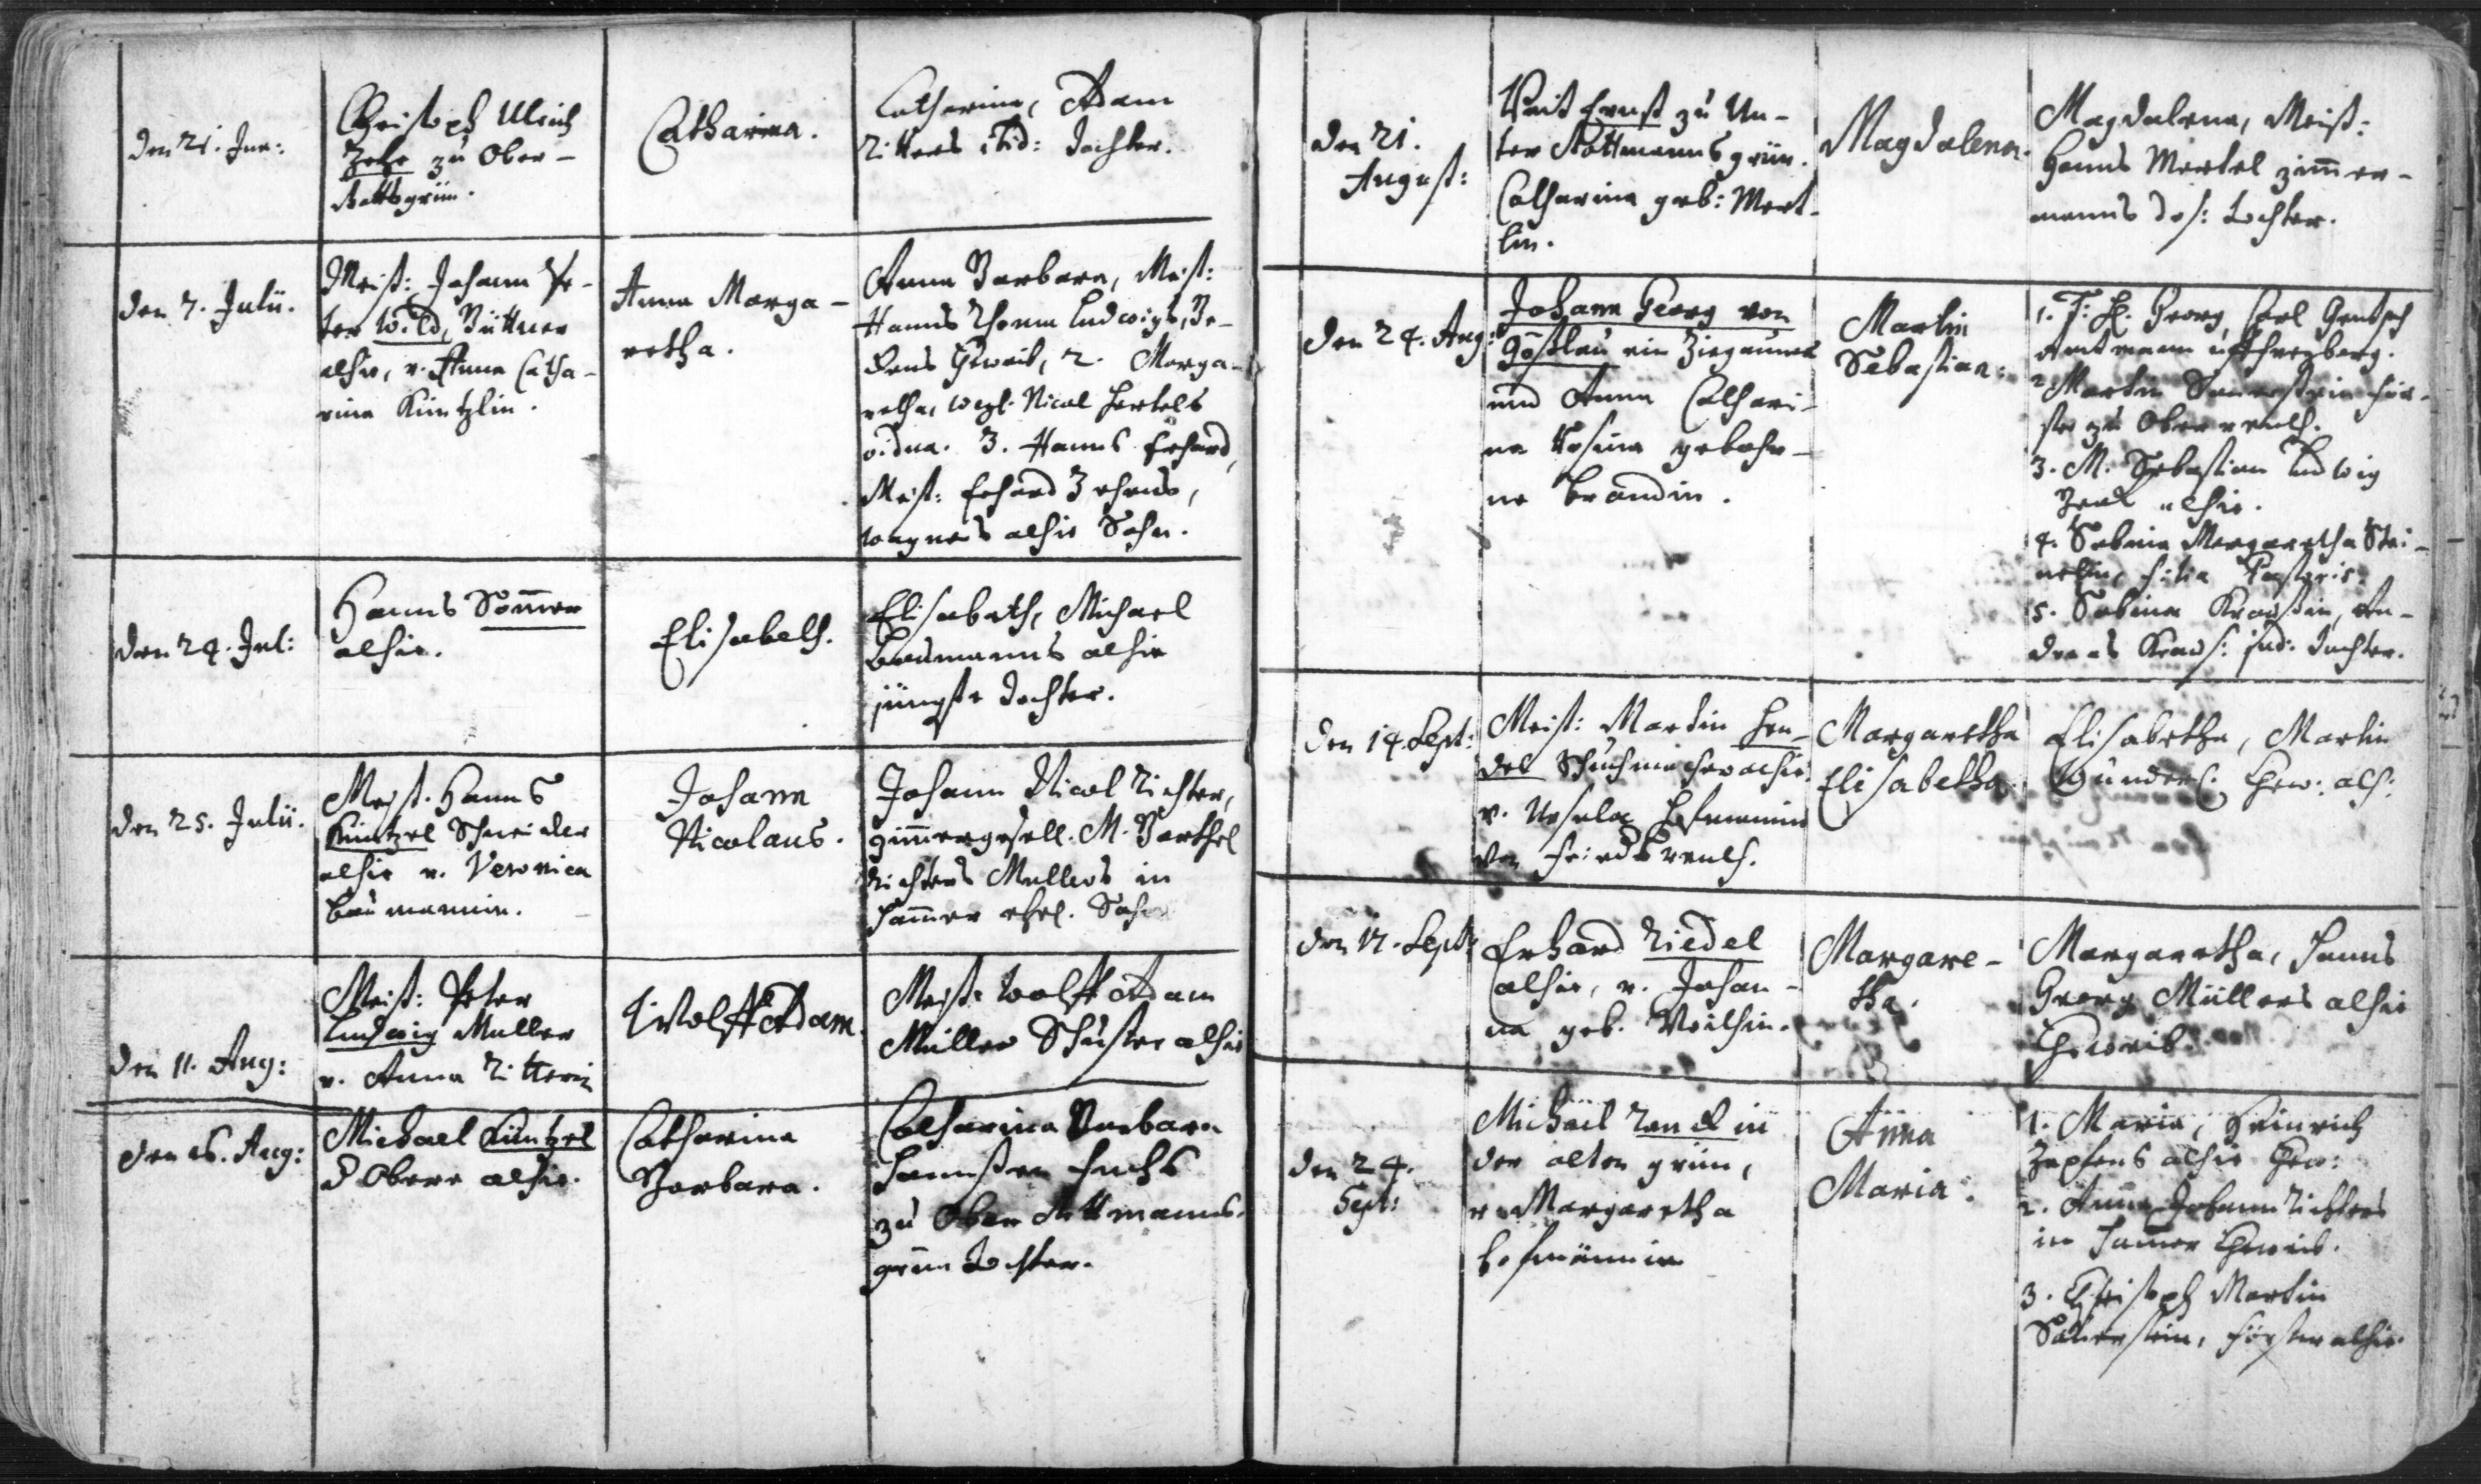 den 21. Jun:
Christoph Ulrich
Zehe zu Ober-
Rottsgrün.
Catharina.
Catharina, Adam
Ritters Tochter.
den 7. Julii.
Meist: Johann Pe-
ter Wild, Büttner
alhie, v. Anna Catha-
rina Küntzlin.
Anna Marga-
retha.
Anna Barbara, Meist:
Hanns Thoma Ludwigs, Be-
Eheweib, 2. Marga-
retha, Nicol Hertels
vidua. 3. Hanns Erhard,
Meist: Erhard Zehens,
wagners alhie Sohn.
den 24. Jul:
Hanns Som̄er
alhie.
Elisabeth.
Elisabeth, Michael
Baumanns alhie
jüngste Tochter.
den 25. Julii.
Meist. Hanns
Küntzel Schneider
alhie v. Veronica
Baumannin.
Johann
Nicolaus.
Johann Nicol Richter,
Zim̄ergesell. M. Barthel
Richters Müllers in
Ham̄er ehel. Sohn
den 11. Aug:
Meist: Peter
Ludwig Müller
v. Anna Ritterin
Wolff Adam.
Meist: Wolff Adam
Müller Schuster alhie
den 15. Aug:
Michael Küntzel
d Obere alhie.
Catharina
Barbara.
Catharina Barbara
Fuchs
zu Ober Rottmanns-
grün Tochter.
den 21.
August:
Veit Ernst zu Un-
ter Rottmannsgrün.
Catharina geb: Mert-
lin.
Magdalena.
Magdalena, Meist:
Hanns Mertel zim̄er-
manns das: Tochter.
den 24. Aug:
Johann Georg von
Goßlau ein Ziegeuner
und Anna Cathari-
na Rosina gebohr-
ne Brandin.
Martin
Sebastian.
1. T: H. Georg Carl Gentsch
Amtmann
2. Martin Sauerstein För-
ster zu Oberreuth.
3. M. Sebastian Ludwig
alhie.
4. Sabina Margaretha Stei-
filia Pastoris.
5. Sabina Kraußin, An-
dreas Kraus: Tochter.
den 14. Sept:
Meist: Martin Hen-
del Schuhmacher alhie.
v. Ursula Hofmannin
von Friedersreuth.
Margaretha
Elisabetha.
Elisabetha, Martin
Wunderl: Ehew: alh:
den 17. Sept:
Erhard Riedel
alhie, v. Johan-
na geb.
Margare-
tha.
Margaretha, Hanns
Georg Müllers alhie
Eheweib.
den 24.
Sept:
Michael in
der alten grün,
v. Margaretha
Hofmännin
Anna
Maria.
1. Maria, Heinrich
Zapfens alhie Ehew:
2. Anna Johann Richters
in Ham̄er Eheweib.
3. Christoph Martin
Sauerstein, Förster alhie.